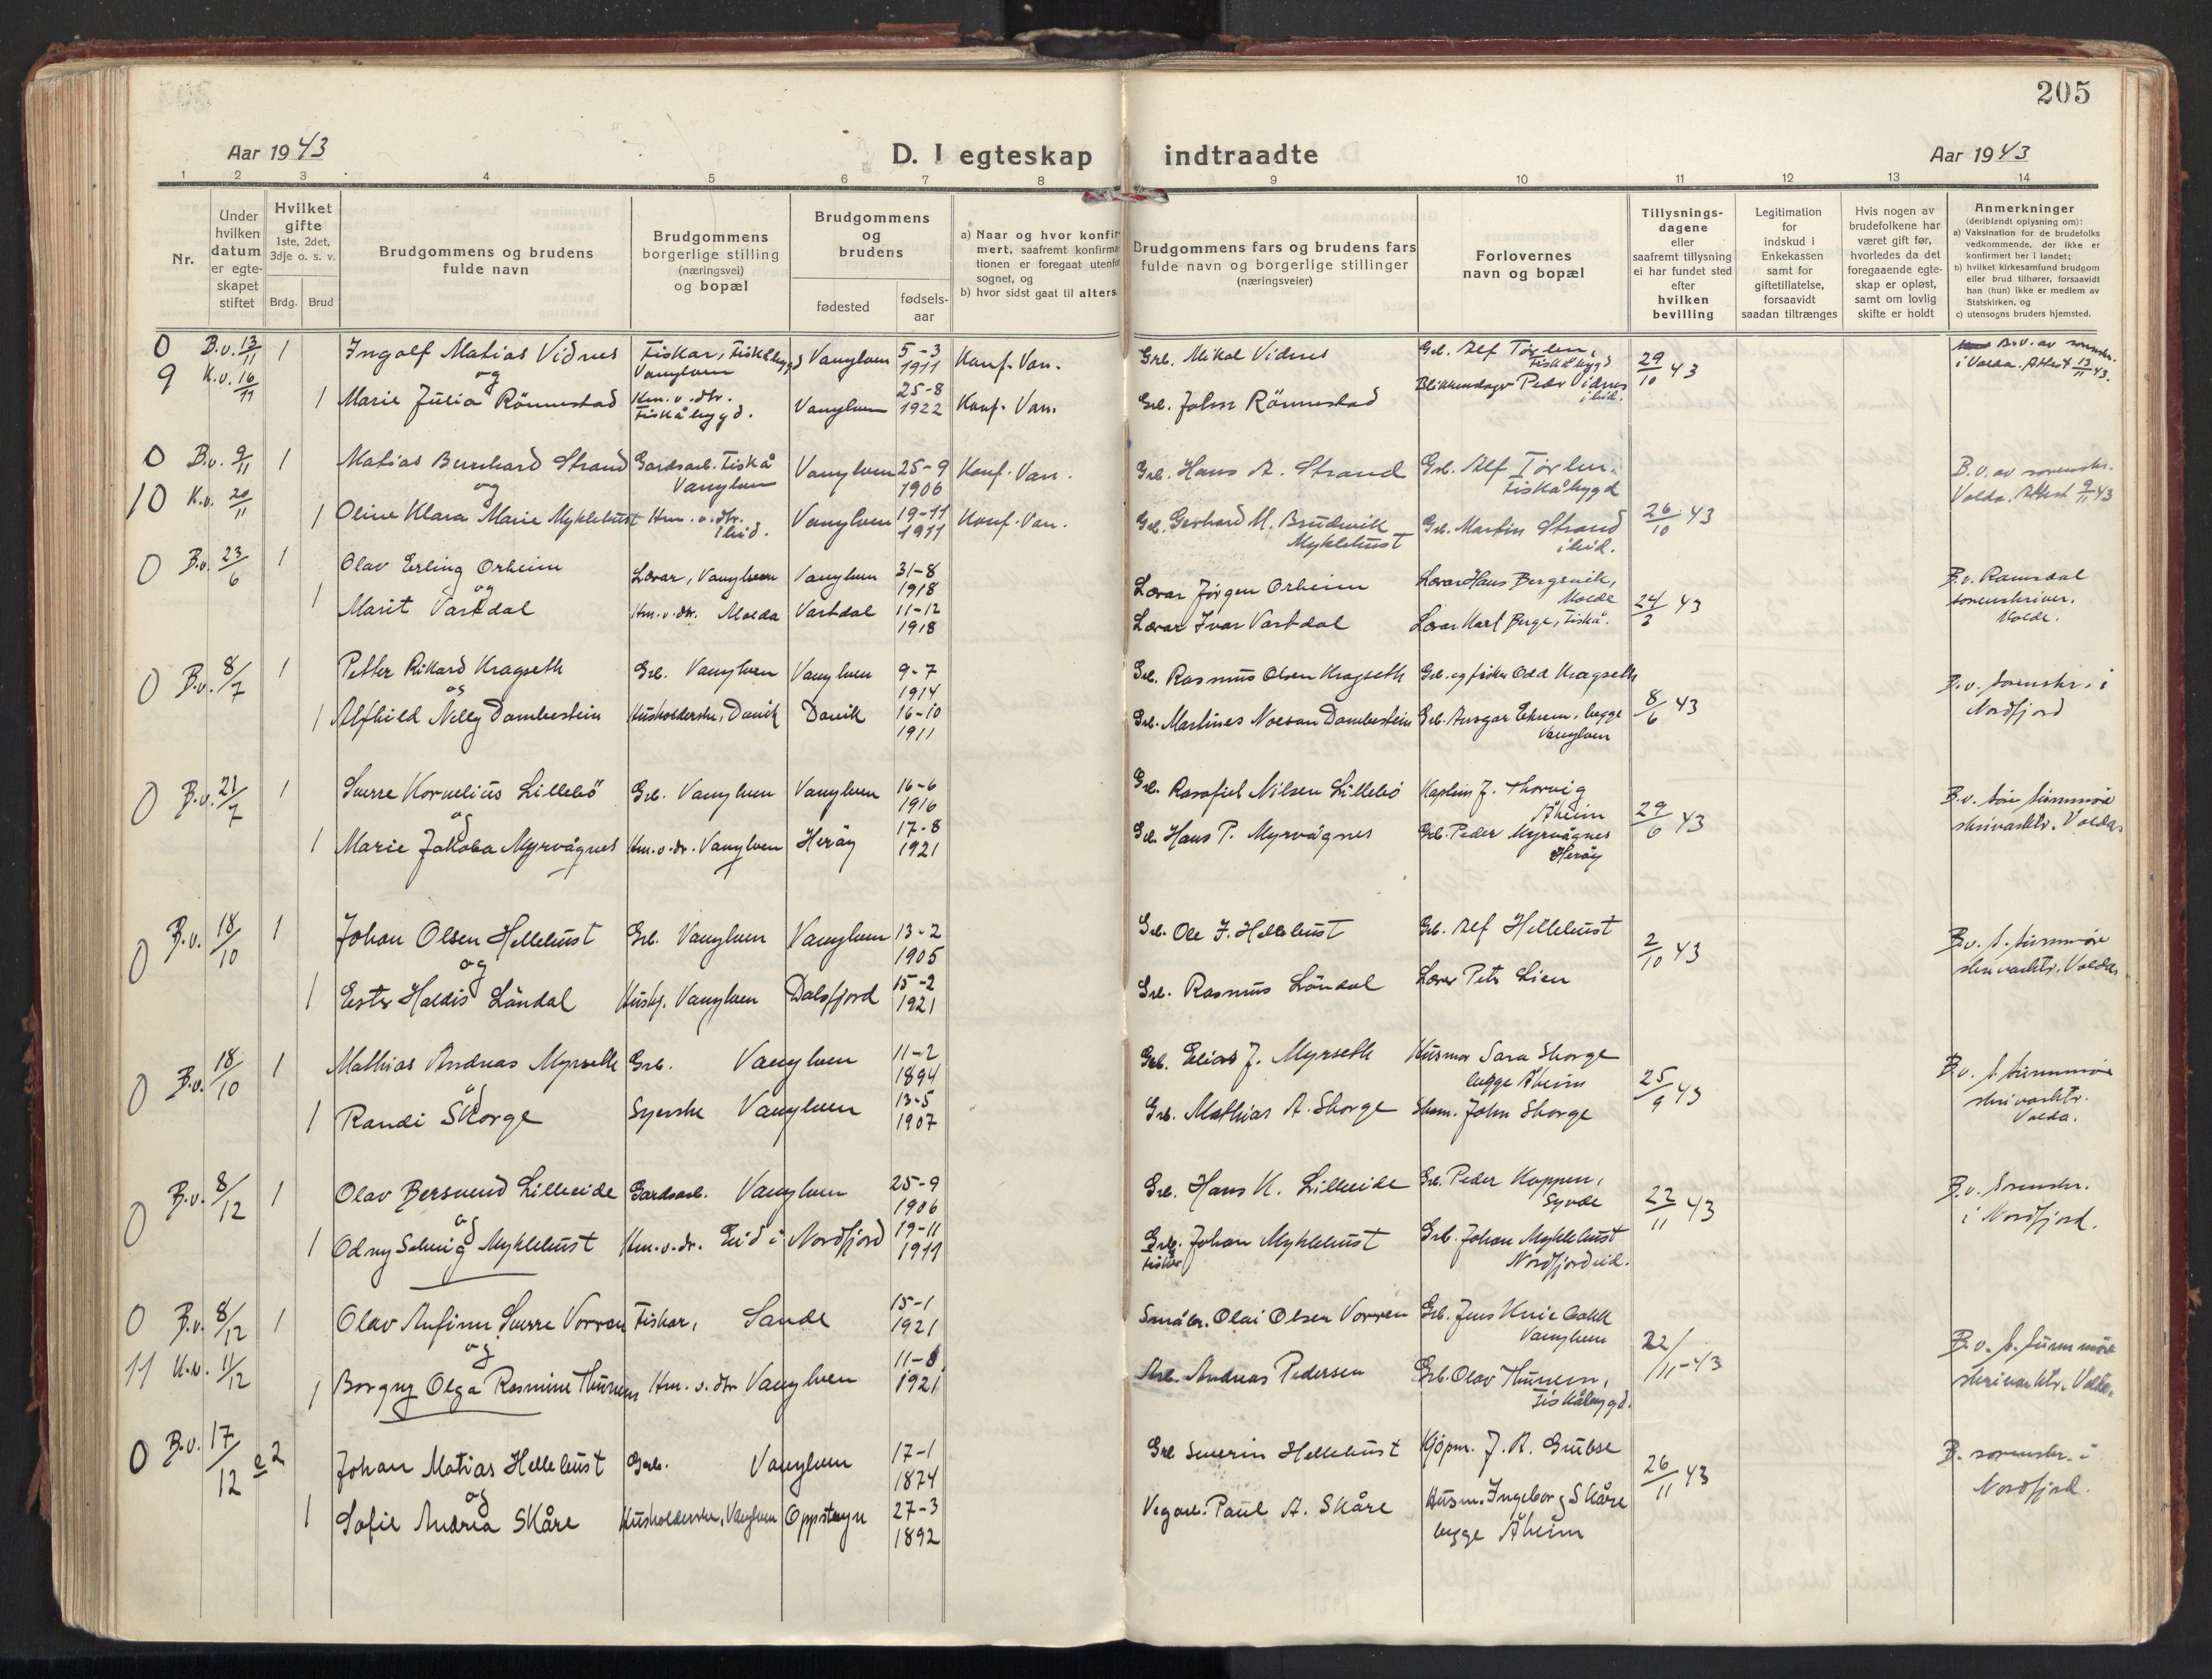 205
Aar 1943
D. I egteskap indtraadte
Aar 1943
1 2 3 4 5 6 7 8 9 10 11 12 13 14
Nr.
Under hvilken datum er egteskapet stiftet
Hvilket gifte 1ste, 2det, 3dje o. s. v.
Brdg. Brud
Brudgommens og brudens fulde navn
Brudgommens borgerlige stilling (næringsvei) og bopæl
Brudgommens og brudens
fødested
fødselsaar
a) Naar og hvor konfirmert, saafremt konfirmationen er foregaat utenfor sognet, og
b) hvor sidst gaat til alters
Brudgommens fars og brudens fars fulde navn og borgerlige stillinger (næringsveier)
Forlovernes navn og bopæl
Tillysningsdagene eller saafremt tillysning ei har fundet sted efter hvilken bevilling
Legitimation for indskud i Enkekassen samt for giftetillatelse, forsaavidt saadan tiltrænges
Hvis nogen av brudefolkene har været gift før, hvorledes da det foregaaende egteskap er opløst, samt om lovlig skifte er holdt
Anmerkninger (deriblendt oplysning om):
a) Vaksination for de brudefolks vedkommende, der ikke er konfirmert her i landet;
b) hvilket kirkesamfund brudgom eller brud tilhører, forsaavidt han (hun) ikke er medlem av Statskirken, og
c) utensogns bruders hjemsted.
0 B.v. 13/11 1 Ingolf Matias Vidnes Fiskar, Fiskåbygd Vanylven Vanylven 5-3 1911 Konf. Van. Grb. Mikal Vidnes Grb. Alf Tørlen, Fiskåbygd 29/10 43 B.v. av sorenskr. i Volda. Attest 13/11 43.
og
9 K.v. 16/11 1 Marie Julia Rönnestad Hm. v. dtr. Fiskåbygd. Vanylven 25-8 1922 Konf. Van. Grb. Johan Rönnestad Peder Vidnes ibid.
0 B.v. 9/11 1 Matias Bernhard Strand Gardsarb. Fiskå Vanylven Vanylven 25-9 1906 Konf. Van. Grb. Hans A. Strand Grb. Alf Tørlen. Fiskåbygd B.v. av sorenskr. Volda. Attest 9/11 43
og
10 K.v. 20/11 1 Oline Klara Marie Myklebust Hm. v. dtr. ibid. Vanylven 19-11 1911 Konf. Van. Grb. Gerhard M. Brudevik Myklebust Grb. Martin Strand ibid. 26/10 43
0 B.v. 23/6 1 Olav Erling Orheim Lærar, Vanylven Vanylven 31-8 1918 Lærar Jørgen Orheim Lærar Hans Bergsvik, Molde B.v. Romsdal sorenskriver. Molde.
og
1 Marit Vartdal Hm. v. dtr. Molda Vartdal 11-12 1918 Lærar Ivar Vartdal Lærar Kart Berge, Fiskå. 24/3 43
0 B.v. 8/7 1 Petter Rikard Kragseth Grb. Vanylven Vanylven 9-7 1914 Grb. Rasmus Olsen Kragseth Grb. og fisker Odd Kragseth B.v. Sorenskr. i Nordfjord
og
1 Alfhild Nelly Dombestein Husholderske, Davik Davik 16-10 1911 Grb. Martines Dombestein Grb. Ansgar Ekrem, begge Vanylven 8/6 43
0 B.v. 21/7 1 Sverre Kornelius Lillebö Grb. Vanylven Vanylven 16-6 1916 Grb. Rasafiel Nilsen Lillebö Kaptein J. Thorvig Åheim B.v. Søre Sunnmøre skrivarktr. Volda
og
1 Marie Jakoba Myrvågnes Hm. v. dr. Vanylven Heröy 17-8 1921 Grb. Hans P. Myrvågnes Grb. Peder Myrvågnes Heröy 29/6 43
0 B.v. 18/10 1 Johan Olsen Hellebust Grb. Vanylven Vanylven 13-2 1905 Grb. Ole J. Hellebust Grb. Alf Hellebust 2/10 43 B.v. S. Sunnmøre skrivarktr. Volda
og
1 Ester Haldis Löndal Hushj. Vanylven Dalsfjord 15-2 1921 Grb. Rasmus Löndal Lærer Petr Lien
0 B.v. 18/10 1 Mathias Andreas Myrseth Grb. Vanylven 11-2 1894 Grb. Elias J. Myrseth Husmor Sara Skorge begge Åheim B.v. S. Sunnmøre skrivarktr. Volda.
og
1 Randi Skorge Syerske Vanylven 13-5 1907 Grb. Mathias A. Skorge Skom. John Skorge 25/9 43
0 B.v. 8/12 1 Olav Bersvend Lilleeide Gardsarb. Vanylven 25-9 1906 Grb. Hans K. Lilleeide Grb. Peder Koppen, Syvde 22/11 43 B.v. Sorenskr. i Nordfjord.
og
1 Odny Solveig Myklebust Hm. v. dr. Eid i Nordfjord 19-11 1911 Grb. Fisker Johan Myklebust Grb. Johan Myklebust Nordfjordeid.
0 B.v. 8/12 1 Olav Anfinn Sverre Vorren Fiskar, Sande 15-1 1921 Småbr. Olai Olsen Vorren Grb. Jens Vanylven 22/11-43 B.v. S. Sunnmøre skrivarktr. Volda.
og
11 K.v. 11/12 1 Borgny Olga Rasmine Thunem Hm. v. dtr Vanylven 11-8 1921 Arb. Andreas Pedersen Grb. Olav Thunem, Fiskåbygd.
0 B.v. 17/12 e 2 Johan Matias Hellebust Grb. Vanylven 17-1 1874 Grb Severin Hellebust Kjøpm. J. A. Grubse 26/11 43 B. sorenskr. i Nordfjord.
og
1 Sofie Andrea Skåre Husholderske, Vanylven Oppstryn 27-3 1892 Vegarb. Paul A. Skåre Husm. Ingeborg Skåre begge Åheim